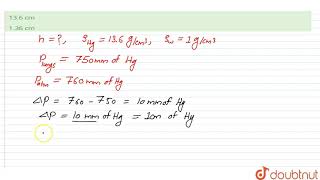 13.6 cm
1.36 cm
h = ?, ρHg = 13.6 g/cm³, ρw = 1 g/cm³
Plungs = 750 mm of Hg
Patm = 760 mm of Hg
ΔP = 760 - 750 = 10 mm of Hg
ΔP = 10 mm of Hg = 1 cm of Hg
doubtnut